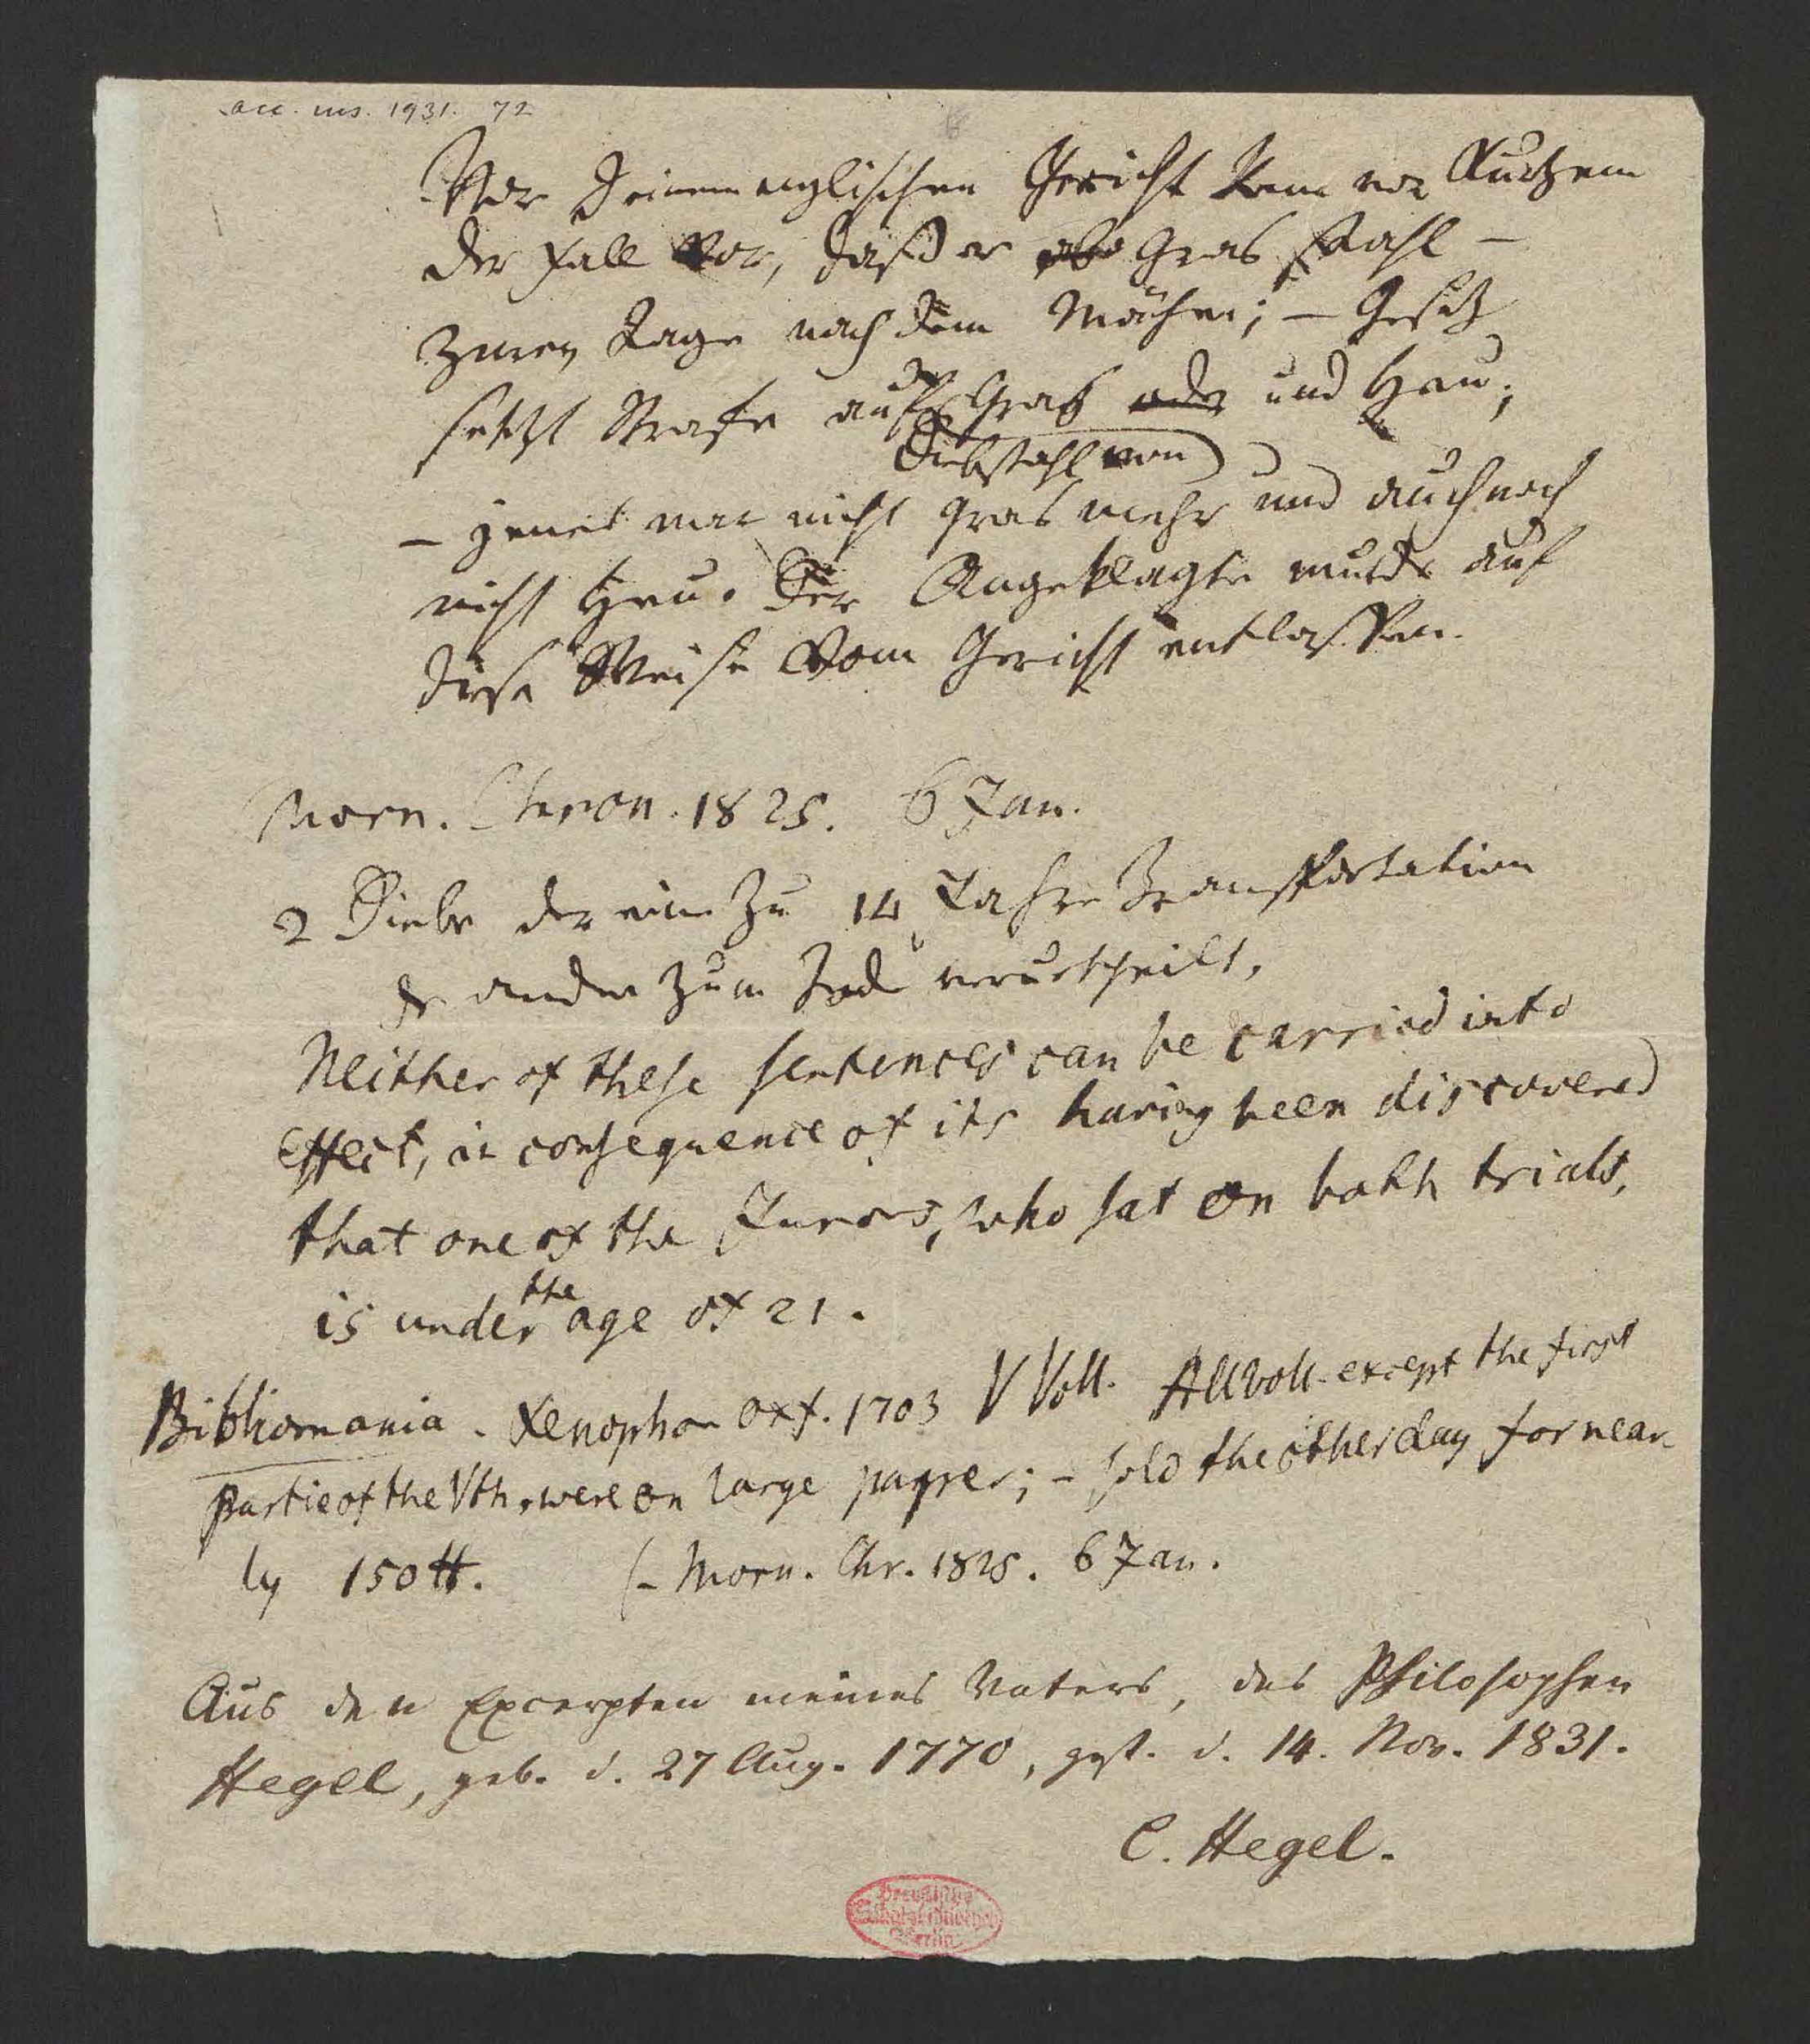 acc. ms. 1931. 72
Vor einem englischen Gericht kam vor Kurtzem
der Fall vor, daß er Gras stahl –
zwey Tage nach dem Mähen; – Gesetz
setzt Strafe auf Gras oder und Heu;
Diebstahl von
– jenes war nicht Gras mehr und auch noch
nicht Heu. Der Angeklagte wurde auf
diese Weise vom Gericht entlassen.
Morn. Chron. 1825. 6 Jan.
2 Diebe der eine zu 14 Jahre Transportation
der andere zum Tode verurtheilt.
Neither of these sentences can be carried into
effect, in consequence of its having been discovered
that one of the Jurors, who sat on both trials,
is under the age of 21.
Bibliomania. Xenophon Oxf. 1703 V Voll. All voll. except the first
partie of the Vth, were on large paper; – sold the other day for near-
ly 150 ℔. (– Morn. Chr. 1825. 6 Jan.
Aus den Excerpten meines Vaters, des Philosophen
Hegel, geb. d. 27 Aug. 1770, gest. d. 14. Nov. 1831.
C. Hegel.
Preußische
Staatsbibliothek
Berlin